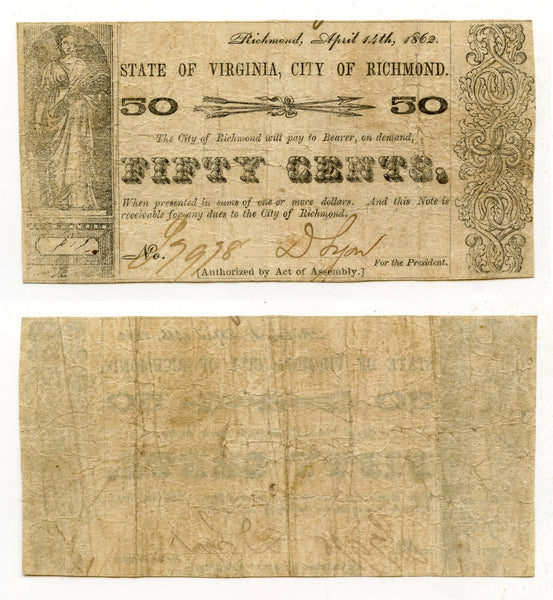 Richmond, April 14th, 1862.
STATE OF VIRGINIA, CITY OF RICHMOND.
50 50
The City of Richmond will pay to Bearer, on demand,
FIFTY CENTS,
When presented in sums of one or more dollars. And this Note is
receivable for any dues to the City of Richmond.
No. 67978 D Lyon For the President.
[Authorized by Act of Assembly.]